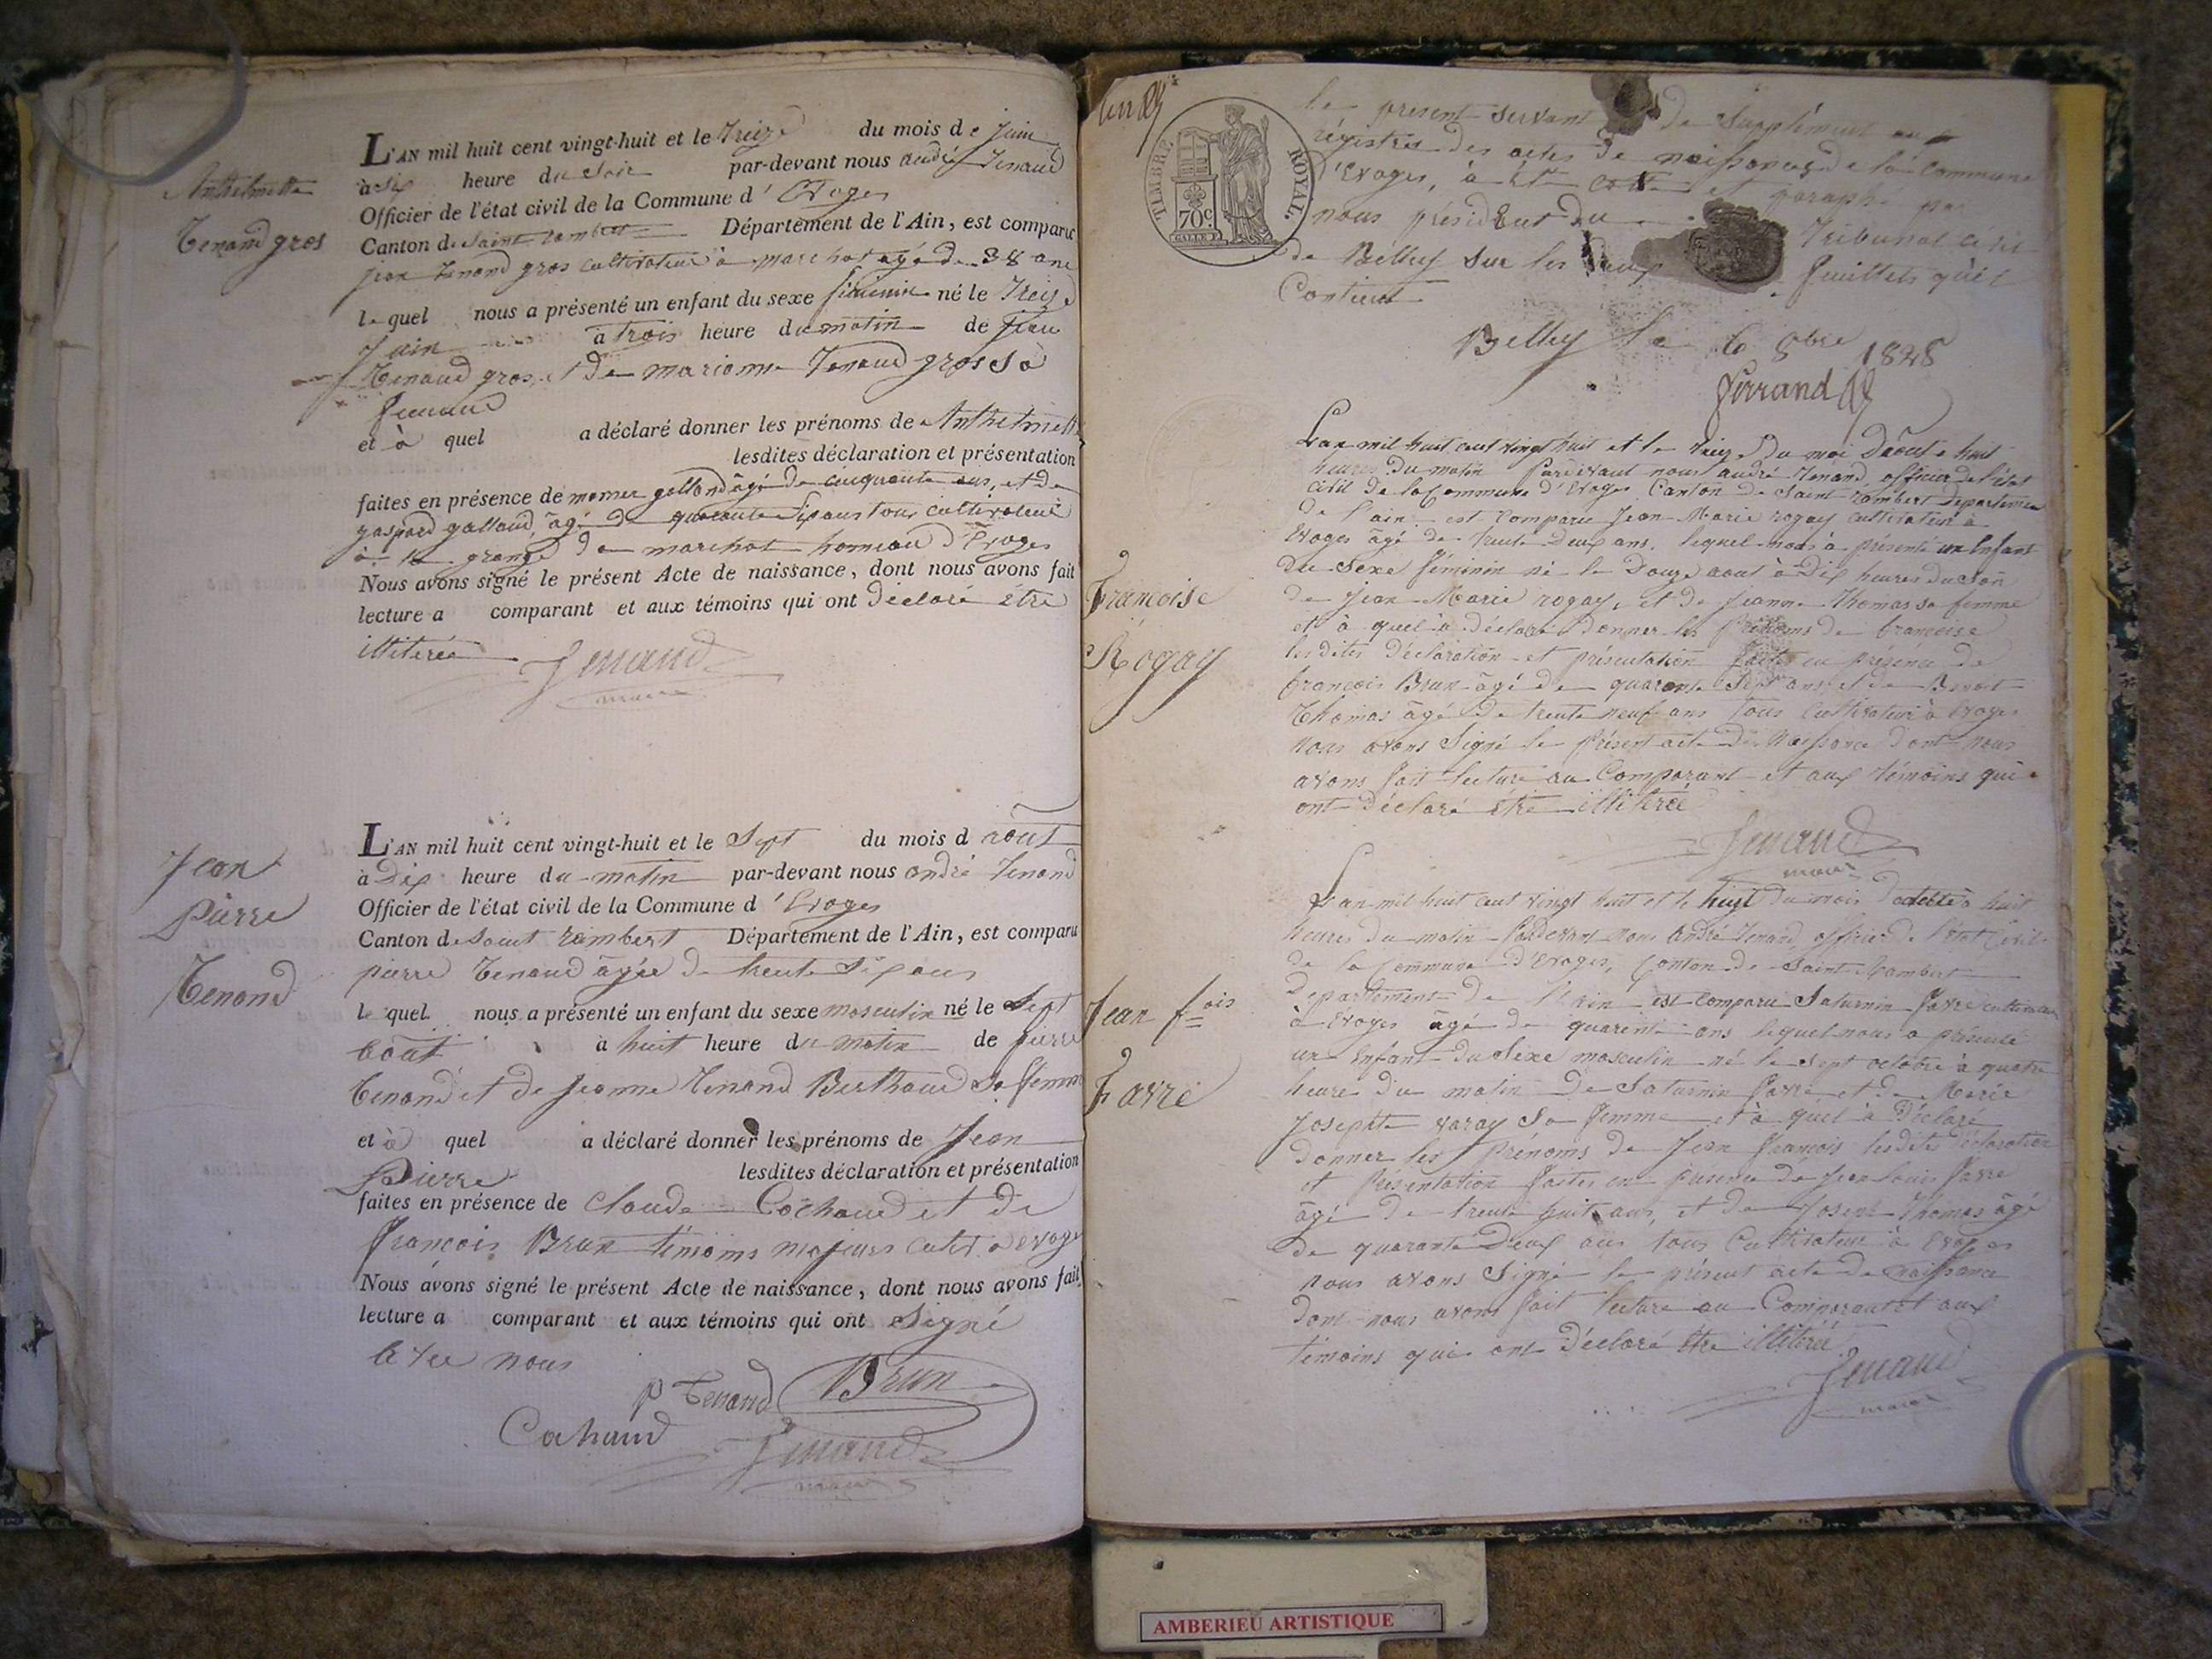 Anthelmette
Tenand gros
L'AN mil huit cent vingt-huit et le treize du mois de juin
à six heure du soir par-devant nous andré Tenand
Officier de l'état civil de la Commune d'Evoges
Canton de Saint rambert Département de l'Ain, est comparu
jean Tenand gros cultivateur à marchat agé de 38 ans
le quel nous a présenté un enfant du sexe féminin né le treize
juin à trois heure du matin de jean
Tenand gros et de marianne Tenand gros sa
femme
et à quel a déclaré donner les prénoms de Anthelmette
lesdites déclaration et présentation
faites en présence de galland âgé de cinquante ans, et de
gaspard galland, âgé de quarante six ans tous cultivateur
à la grange de marchat hameau d'Evoges
Nous avons signé le présent Acte de naissance, dont nous avons fait
lecture a comparant et aux témoins qui ont déclaré etre
illitérée
Tenand
maire
Jean
Pierre
Tenand
L'AN mil huit cent vingt-huit et le sept du mois d août
à Dix heure du matin par-devant nous andré Tenand
Officier de l'état civil de la Commune d'Evoges
Canton de saint rambert Département de l'Ain, est comparu
pierre Tenand âgée de trente six ans
le quel nous a présenté un enfant du sexe masculin né le sept
août à huit heure du matin de pierre
Tenand et de jeanne Tenand Berthaud sa femme
et à quel a déclaré donner les prénoms de Jean
Pierre lesdites déclaration et présentation
faites en présence de claude Cochaud et de
françois Brun témoins majeurs cultet à evoges
Nous avons signé le présent Acte de naissance, dont nous avons fait
lecture a comparant et aux témoins qui ont signé
avec nous
p Tenand Brun
Cohaud
Tenand
maire
TIMBRE ROYAL.
70c.
le présent servant de supplément au
régistre des actes de naissances de la commune
d'Evoges, à été coté et paraphé par
nous président du Tribunal civil
de Belley sur les deux feuillets qu'il
Contient
Belley le 6 8bre 1828
Ferrand
Francoise
Rogay
Lan mil huit cent vingt huit et le treize du moi Daoût à huit
heures du matin Pardevant nous andré Tenand, officier de l'état
civil de la Commune d'Evoges Canton de Saint rambert Departement
de l'ain est comparu Jean Marie rogay cultivateur à
Evoges âgé de trente Deux ans, lequel nous à présenté un Enfant
du Sexe féminin né le Douze aout à Dix heures du Soir
de jean Marie rogay, et de jeanne Thomas sa femme
et à quel à déclaré donner les Prénoms de francoise
les dites déclaration et présentation faite en présence de
francois Brun âgé de quarante sept ans et de Benoit
Thomas âgé de trente neuf ans tous cultivateur à evoges
nous avons signé le présent acte de naissance dont nous
avons fait lecture au Comparant et aux témoins qui
ont déclaré être illitérée
Tenand
maire
Jean fois
Favre
Lan mil huit cent vingt huit et le huit du mois doctobre à huit
heures du matin Pardevant nous André Tenand, officier de l'état Civil
de la commune d'Evoges, Canton de Saint Rambert
Departement de l'ain est comparu Saturnin favre cultivateur
à Evoges âgé de quarente ans lequel nous a présenté
un Enfant du Sexe masculin né le sept octobre à quatre
heure du matin de Saturnin favre et de Marie
Josephte varay sa femme et à quel à Déclaré
donner les Prénoms de Jean françois les dites déclaration
et Présentation faites en présence de Jean louis favre
âgé de trente huit ans, et de Joseph Thomas âgé
de quarante Deux ans tous Cultivateur à Evoges
nous avons signé le présent acte de naissance
dont nous avons fait lecture au Comparant et aux
témoins qui ont Déclaré être illitérée
Tenand
maire
AMBERIEU ARTISTIQUE